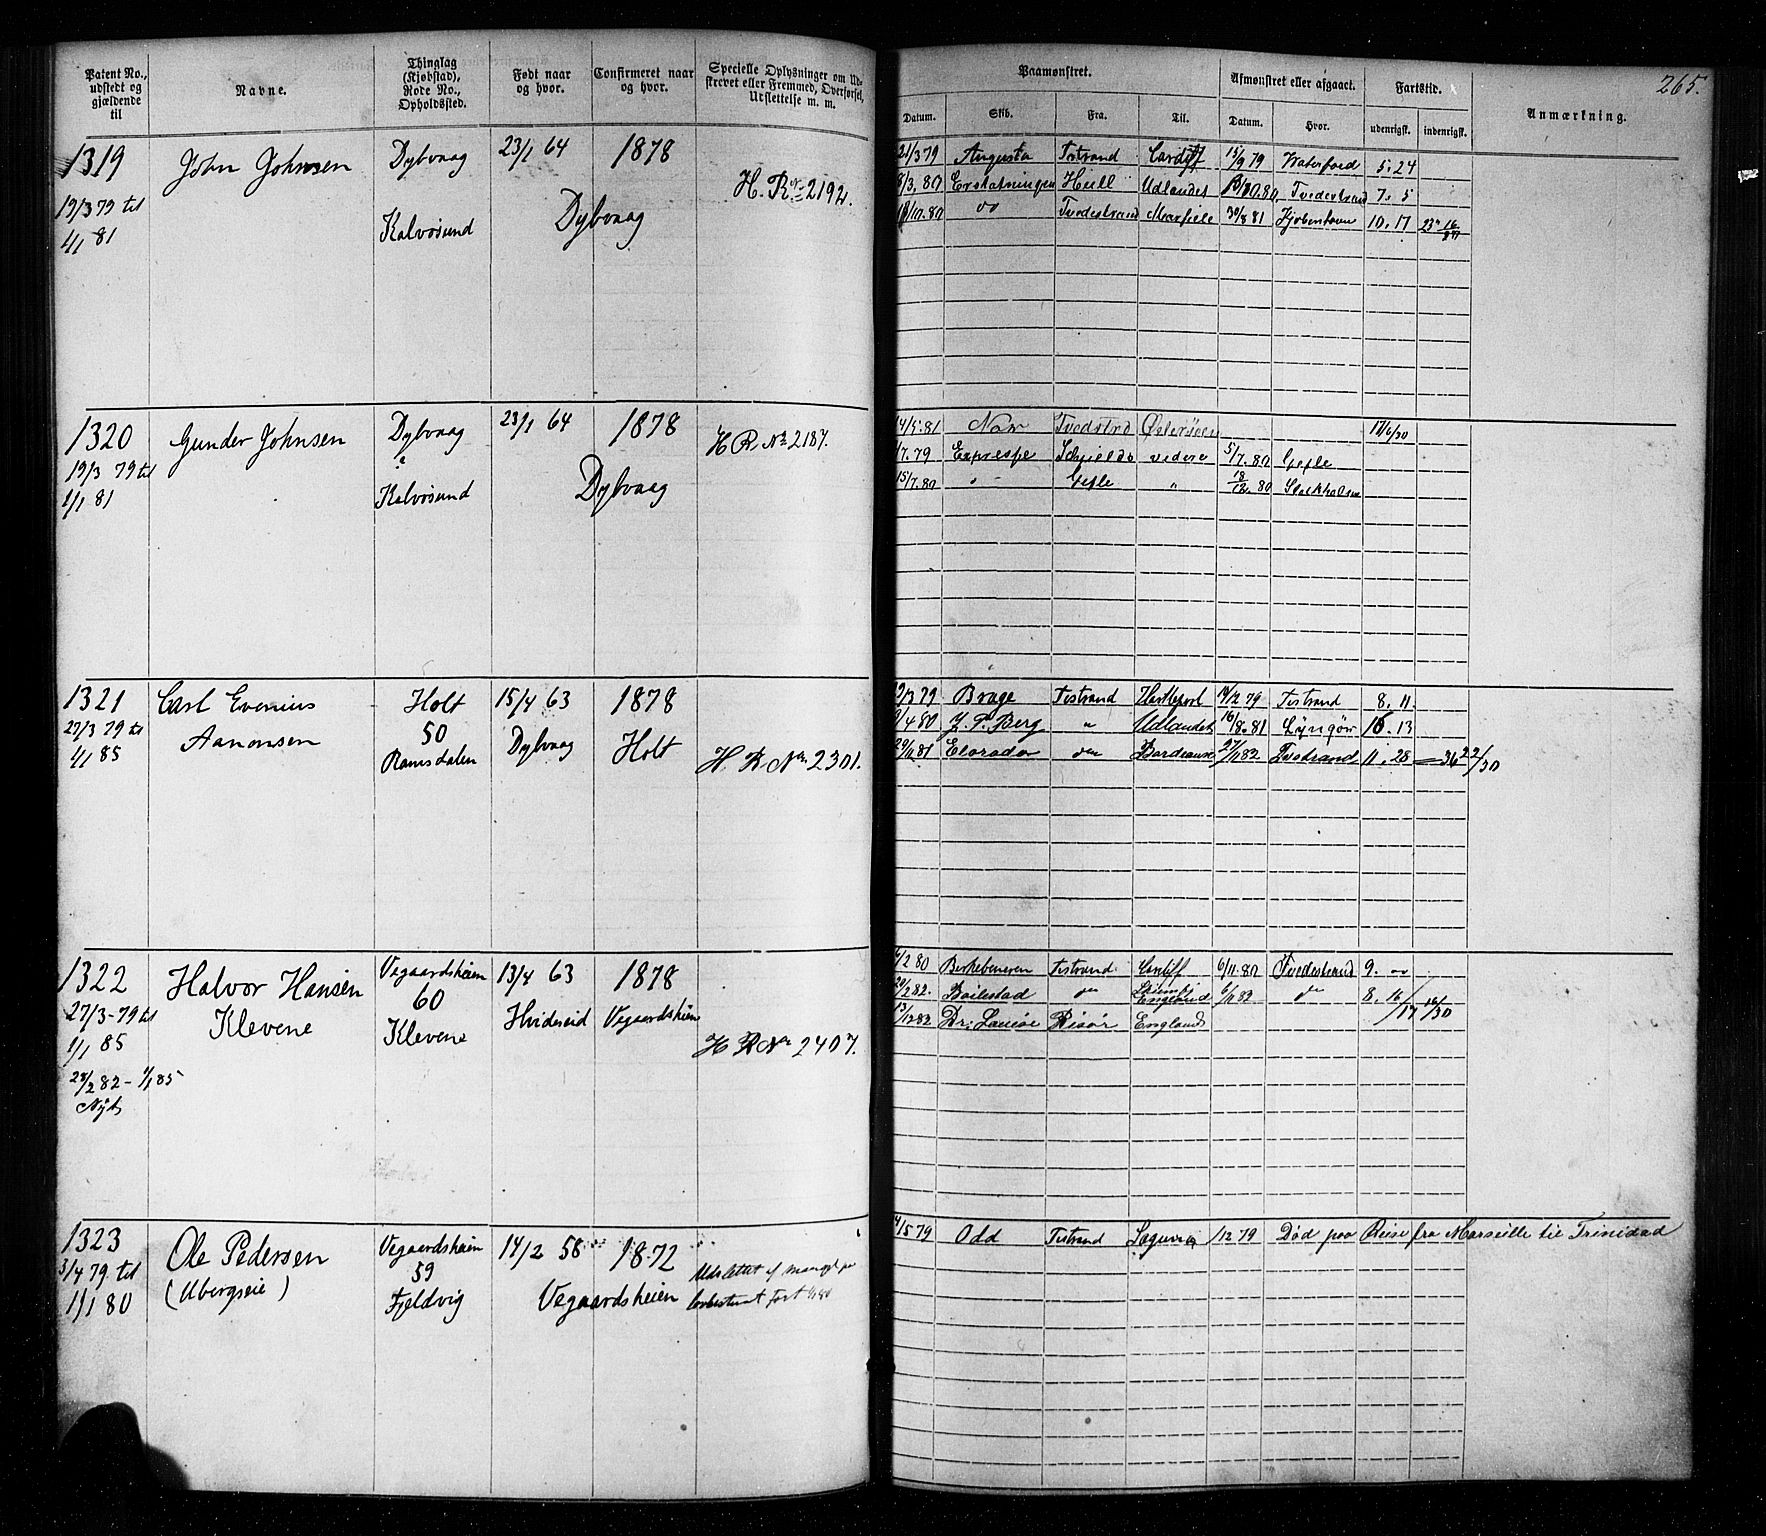 265.
Patent No., udstedt og gjældende til
Navne.
Thinglag (Kjøbstad), Rode No., Opholdssted.
Født naar og hvor.
Confirmeret naar og hvor.
Specielle Oplysninger om Udskrevet eller Fremmed, Overførsel, Udslettelse m. m.
Paamønstret.
Afmønstret eller afgaaet.
Fartstid.
Anmærkning.
Datum. Skib. Fra. Til. Datum. Hvor. udenrigsk. indenrigsk.
1319 John Johnsen Dybvaag 23/1 64 1878
19/3 79 til H. R. No 2192.
1/1 81 Kalvøsund Dybvaag
21/3 79 Augusta Tvstrand Cardiff 15/9 79 Waterford 5. 24
8/3. 80 Erstatningen Hull Udlandet Tvedestrand 7. 5
do Tvedestrand Marseile 30/8 81 Kjøbenhavn 10. 17
1320 Gunder Johnsen Dybvaag 23/1 64 1878 H R. No 2187.
19/3 79 til
1/1 81 Kalvøsund Dybvaag
14/5. 81 Tvedstrd Østersøen 17/6/30
/7. 79 videre 5/7. 80 Gefle
15/7. 80 " Gefle " 18/12. 80 Stockholm
1321 Carl Evenius Holt 15/4 63 1878
27/3 79 til Aanonsen 50
1/1 85 Ramsdalen Dybvaag Holt H R. No 2301.
/3 79 Brage Testrand Hartlepool 19/12 79 Testrand 8. 11
/4 80 J. P. Berg " Udlandet 16/8. 81 Lyngør 16. 13
29/11 81 Elorador do Bordeaux 27/11 82 Testrand 11. 28 — 36 22/30
1322 Halvor Hansen Vegaardsheien 13/4 63 1878
27/3 - 79 til Klevene 60
1/1 85 Klevene Hvideseid Vegaardsheien H R No 2407.
28/2 82 - 1/1 85
Nyt
/2 80 Birkebeneren Testrand Cardiff 6/11. 80 Tvedestrand 9. "
20/2 82. Boilestad do England do 8. 16/
13/12 82 Dr. Louise Risør England /17 16/30
1323 Ole Pedersen Vegaardsheien 14/2 58 1872
3/4 79 til (Ubergseie) 59 Udslettet af mangel paa
1/1 80 Fjeldvig Vegaardsheien
/5 79 Odd Testrand 1/12 79 Død paa Reise fra Marseille til Trinidad